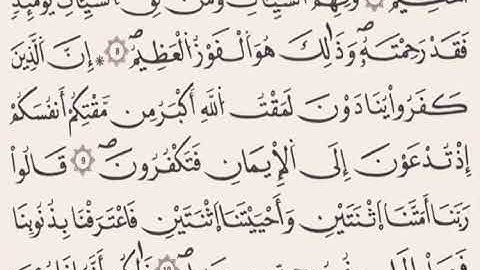 وَقِهِمُ السَّيِّئَاتِ وَمَن تَقِ السَّيِّئَاتِ يَوْمَئِذٍ
فَقَدْ رَحِمْتَهُۥ وَذَٰلِكَ هُوَ الْفَوْزُ الْعَظِيمُ 8 * إِنَّ الَّذِينَ
كَفَرُوا۟ يُنَادَوْنَ لَمَقْتُ اللَّهِ أَكْبَرُ مِن مَّقْتِكُمْ أَنفُسَكُمْ
إِذْ تُدْعَوْنَ إِلَى الْإِيمَانِ فَتَكْفُرُونَ 9 قَالُوا۟
رَبَّنَا أَمَتَّنَا اثْنَتَيْنِ وَأَحْيَيْتَنَا اثْنَتَيْنِ فَاعْتَرَفْنَا بِذُنُوبِنَا